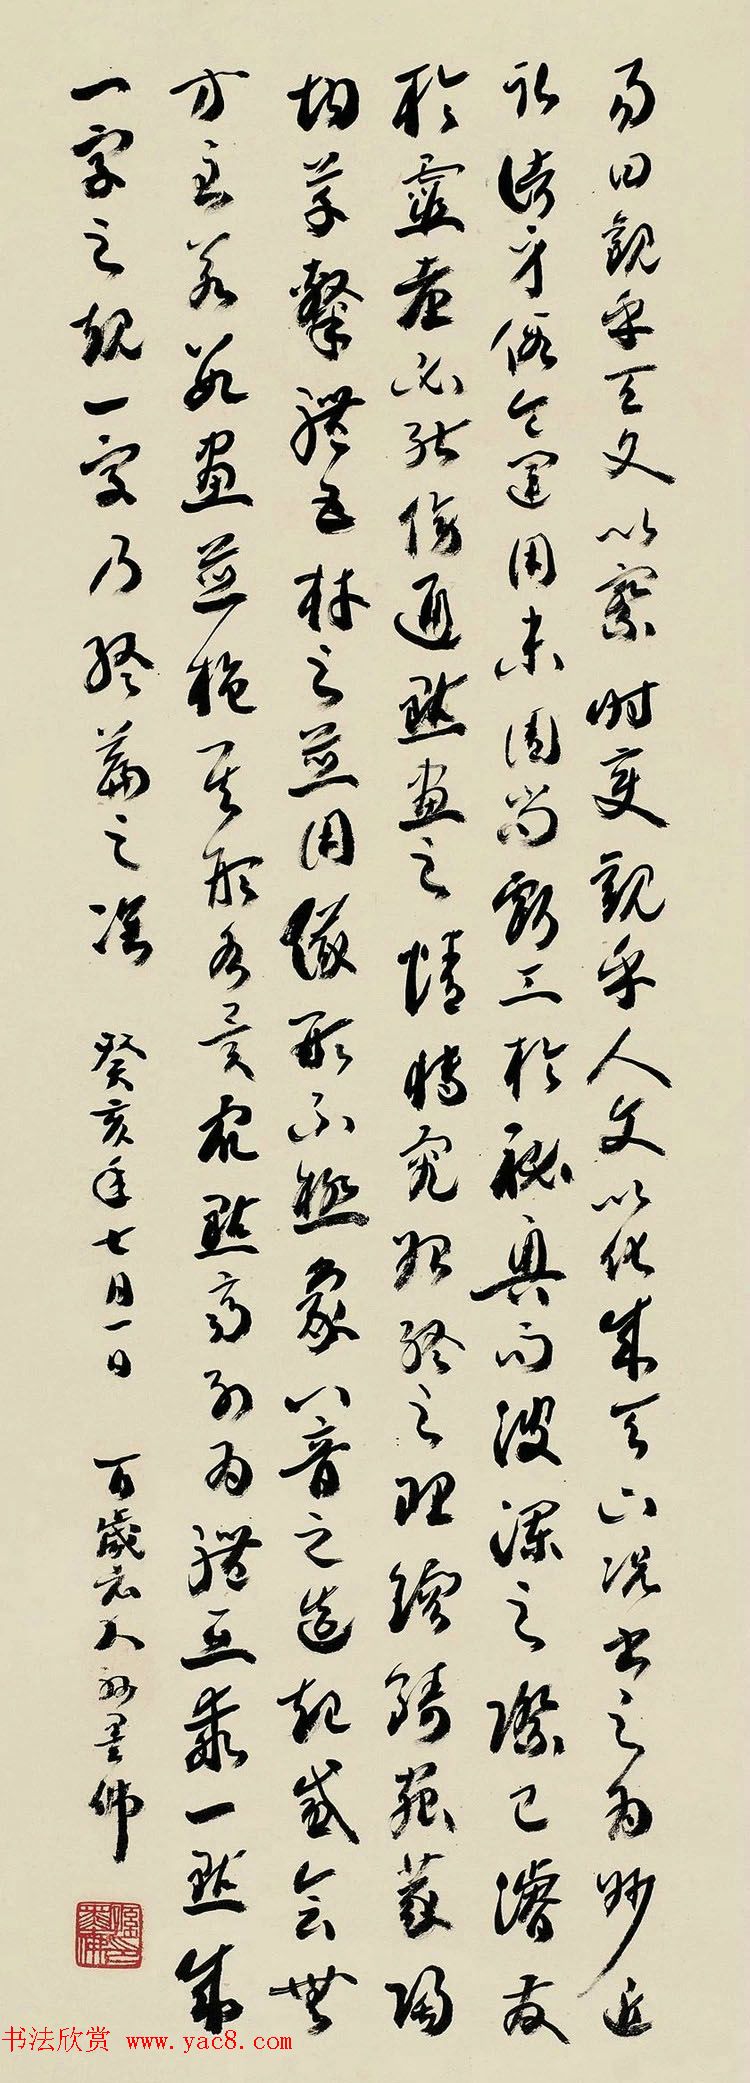 易曰觀乎天文以察時變觀乎人文以化成天下況書之為妙近
取諸身假令運用未周尚虧工於秘奧而波瀾之際已濬發
於靈臺必能傍通點畫之情博究始終之理鎔鑄蟲篆陶
均草隸體五材之並用儀形不極象八音之迭起感會無
方至若數畫並施其形各異眾點齊列為體互乖一點成
一字之規一字乃終篇之准 癸亥年七月一日 百歲老人孫墨佛
書法欣赏 www.yac8.com